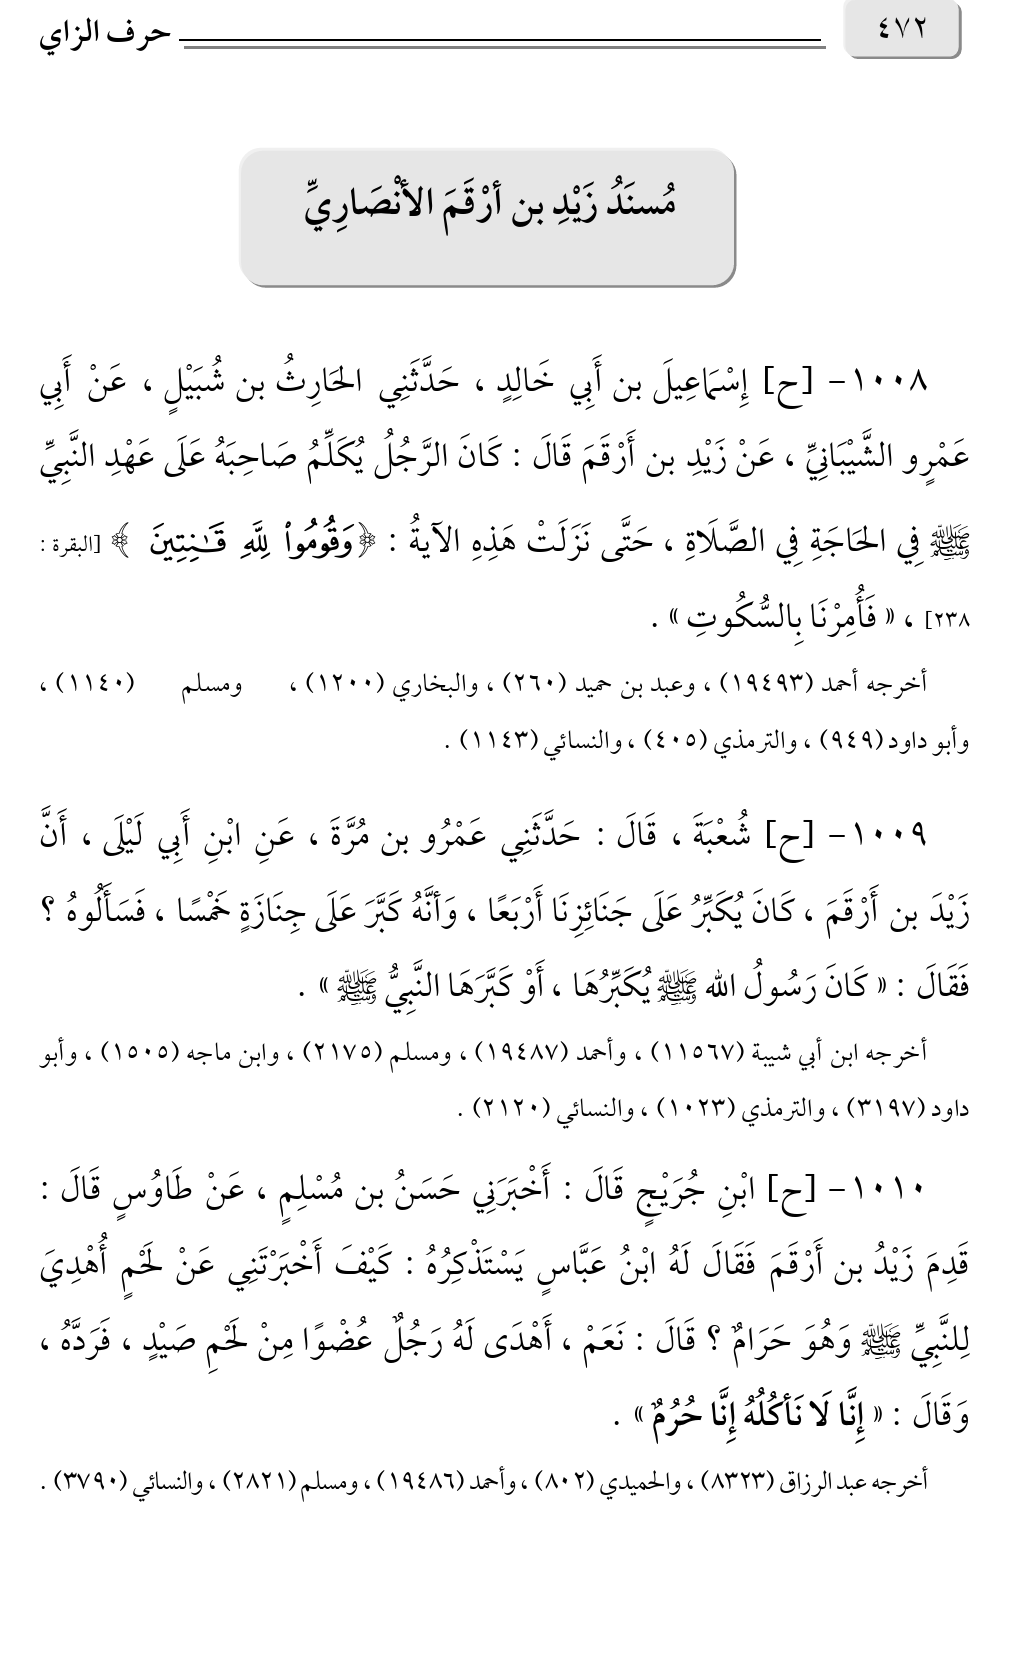 ٤٧٢
حرف الزاي
مُسنَدُ زَيْدِ بن أرْقَمَ الأنْصَارِيِّ
١٠٠٨- [ح] إِسْمَاعِيلَ بن أَبِي خَالِدٍ ، حَدَّثَنِي الحَارِثُ بن شُبَيْلٍ ، عَنْ أَبِي
عَمْرٍو الشَّيْبَانِيِّ ، عَنْ زَيْدِ بن أَرْقَمَ قَالَ : كَانَ الرَّجُلُ يُكَلِّمُ صَاحِبَهُ عَلَى عَهْدِ النَّبِيِّ
ﷺ فِي الحَاجَةِ فِي الصَّلَاةِ ، حَتَّى نَزَلَتْ هَذِهِ الآيةُ : ﴿وَقُومُوا۟ لِلَّهِ قَـٰنِتِينَ ﴾ [البقرة :
٢٣٨] ، « فَأُمِرْنَا بِالسُّكُوتِ » .
أخرجه أحمد (١٩٤٩٣) ، وعبد بن حميد (٢٦٠) ، والبخاري (١٢٠٠) ، ومسلم (١١٤٠) ،
وأبو داود (٩٤٩) ، والترمذي (٤٠٥) ، والنسائي (١١٤٣) .
١٠٠٩- [ح] شُعْبَةَ ، قَالَ : حَدَّثَنِي عَمْرُو بن مُرَّةَ ، عَنِ ابْنِ أَبِي لَيْلَى ، أَنَّ
زَيْدَ بن أَرْقَمَ ، كَانَ يُكَبِّرُ عَلَى جَنَائِزِنَا أَرْبَعًا ، وَأنَّهُ كَبَّرَ عَلَى جِنَازَةٍ خَمْسًا ، فَسَأَلُوهُ ؟
فَقَالَ : « كَانَ رَسُولُ الله ﷺ يُكَبِّرُهَا ، أَوْ كَبَّرَهَا النَّبِيُّ ﷺ » .
أخرجه ابن أبي شيبة (١١٥٦٧) ، وأحمد (١٩٤٨٧) ، ومسلم (٢١٧٥) ، وابن ماجه (١٥٠٥) ، وأبو
داود (٣١٩٧) ، والترمذي (١٠٢٣) ، والنسائي (٢١٢٠) .
١٠١٠- [ح] ابْنِ جُرَيْجٍ قَالَ : أَخْبَرَنِي حَسَنُ بن مُسْلِمٍ ، عَنْ طَاوُسٍ قَالَ :
قَدِمَ زَيْدُ بن أَرْقَمَ فَقَالَ لَهُ ابْنُ عَبَّاسٍ يَسْتَذْكِرُهُ : كَيْفَ أَخْبَرْتَنِي عَنْ لَحْمٍ أُهْدِيَ
لِلنَّبِيِّ ﷺ وَهُوَ حَرَامٌ ؟ قَالَ : نَعَمْ ، أَهْدَى لَهُ رَجُلٌ عُضْوًا مِنْ لَحْمِ صَيْدٍ ، فَرَدَّهُ ،
وَقَالَ : « إِنَّا لَا نَأكُلُهُ إِنَّا حُرُمٌ » .
أخرجه عبد الرزاق (٨٣٢٣) ، والحميدي (٨٠٢) ، وأحمد (١٩٤٨٦) ، ومسلم (٢٨٢١) ، والنسائي (٣٧٩٠) .